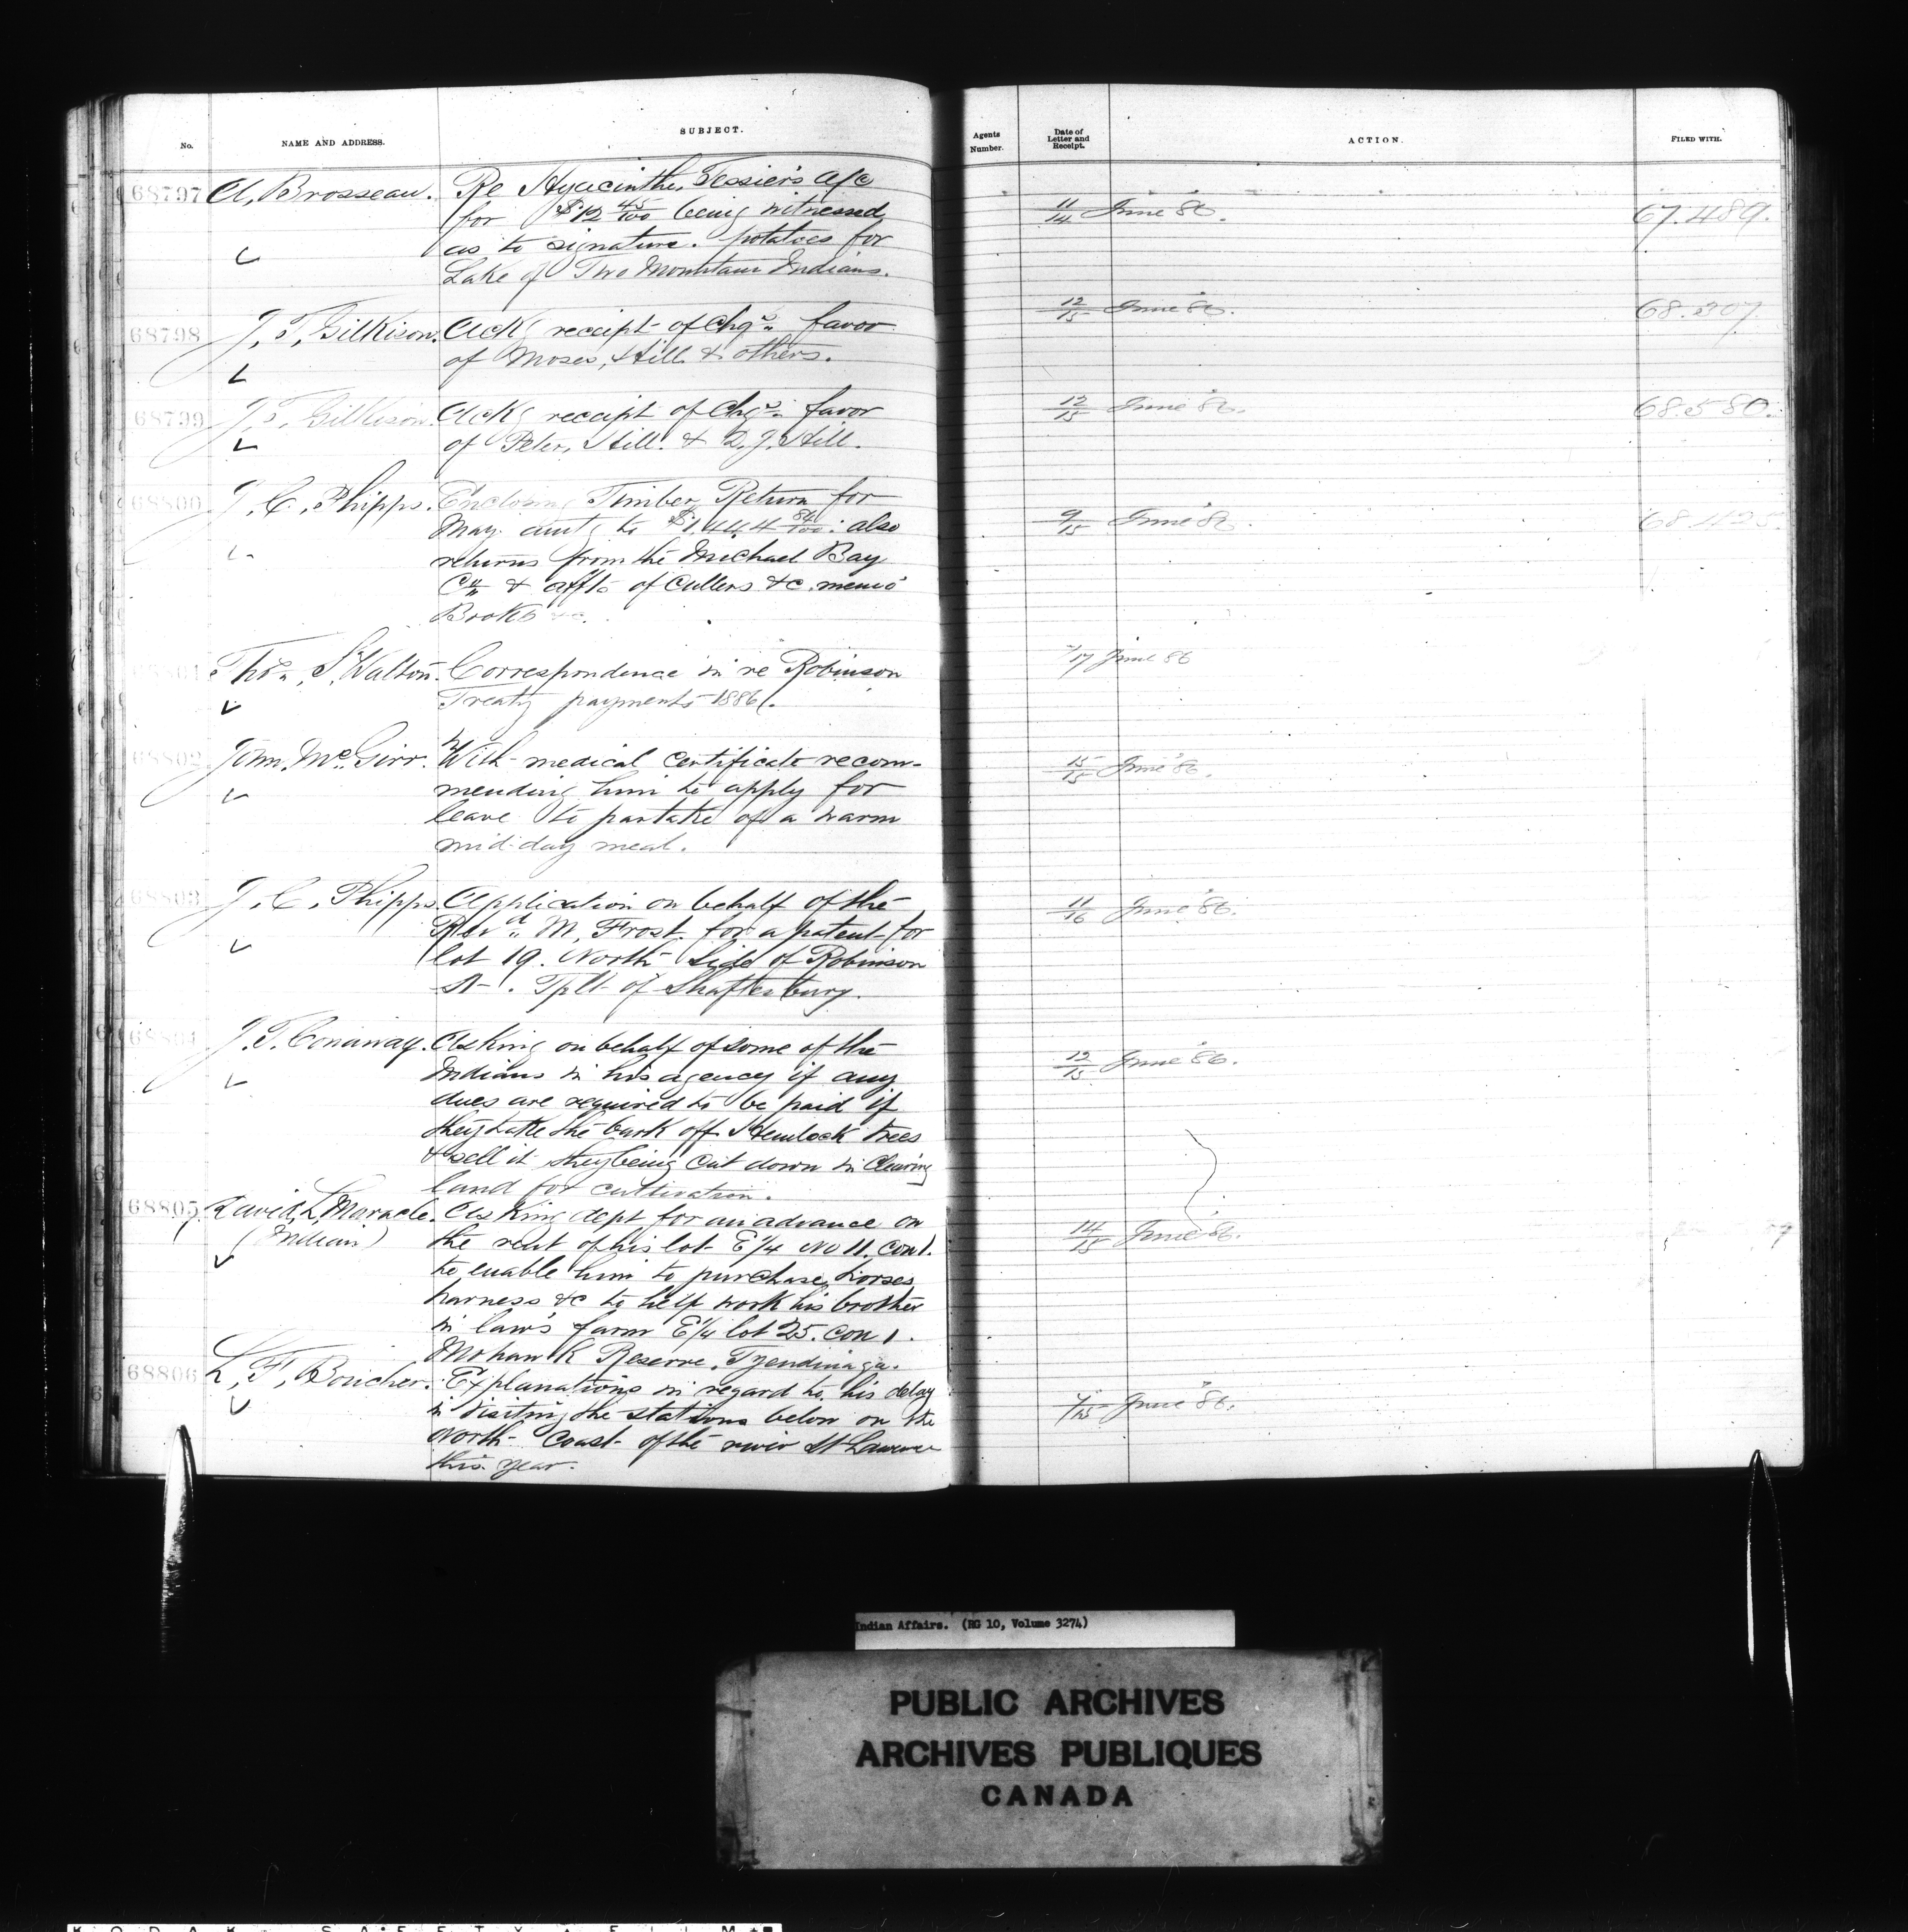 No.
NAME AND ADDRESS.
SUBJECT.
Agents Number.
Date of Letter and Receipt.
ACTION.
FILED WITH.
68797 A, Brosseau. Re Hyacinthe, Tessier's a/c
for $12 45/100 being witnessed
as to signature. potatoes for
Lake of Two Mountain Indians.
11/14 June 86. 67.489.
68798 J, T, Gilkison. Ackg receipt of Chqs. favor
of Moses, Hill & others.
12/15 June 86. 68.307
68799 J, T, Gilkison. Ackg receipt of Chqs. favor
of Peter, Hill. & D, J, Hill.
12/15 June 86. 68.580.
68800 J, C, Phipps. Enclosing Timber, Return for
May. amtg to $1,444 84/100: also
returns from the Michael Bay
Co & affts of Cullers &c. memo
Books &c.
9/15 June 86.
68801 Thos, S, Walton. Correspondence in re Robinson
Treaty payments 1886.
/17 June 86
68802 John, McGirr. With medical certificate recom-
mending him to apply for
leave to partake of a warm
mid-day meal.
15/15 June 86.
68803 J, C, Phipps. Application on behalf of the
Revd. M, Frost. for a patent for
lot 19. North Side of Robinson
St. Tplt of Shaftesbury.
11/16 June 86.
68804 J. T. Conaway. Asking on behalf of some of the
Indians in his agency if any
dues are required to be paid if
they take the bark off Hemlock trees
& sell it they being cut down in clearing
land for cultivation.
12/15 June 86.
68805 David, L, Maracle. Asking dept for an advance on
(Indian) the rent of his lot E 1/4 No 11. con 1.
to enable him to purchase, horses,
harness &c to help work his brother
in law's farm E 1/4 lot 25. con 1.
Mohawk Reserve, Tyendinaga.
14/15 June 86.
68806 L, F, Boucher. Explanations in regard to his delay
in visiting the stations below on the
North Coast of the river St Lawrence
this year.
/15 June 86.
Indian Affairs. (RG 10, Volume 3274)
PUBLIC ARCHIVES
ARCHIVES PUBLIQUES
CANADA
KODAK SAFETY FILM